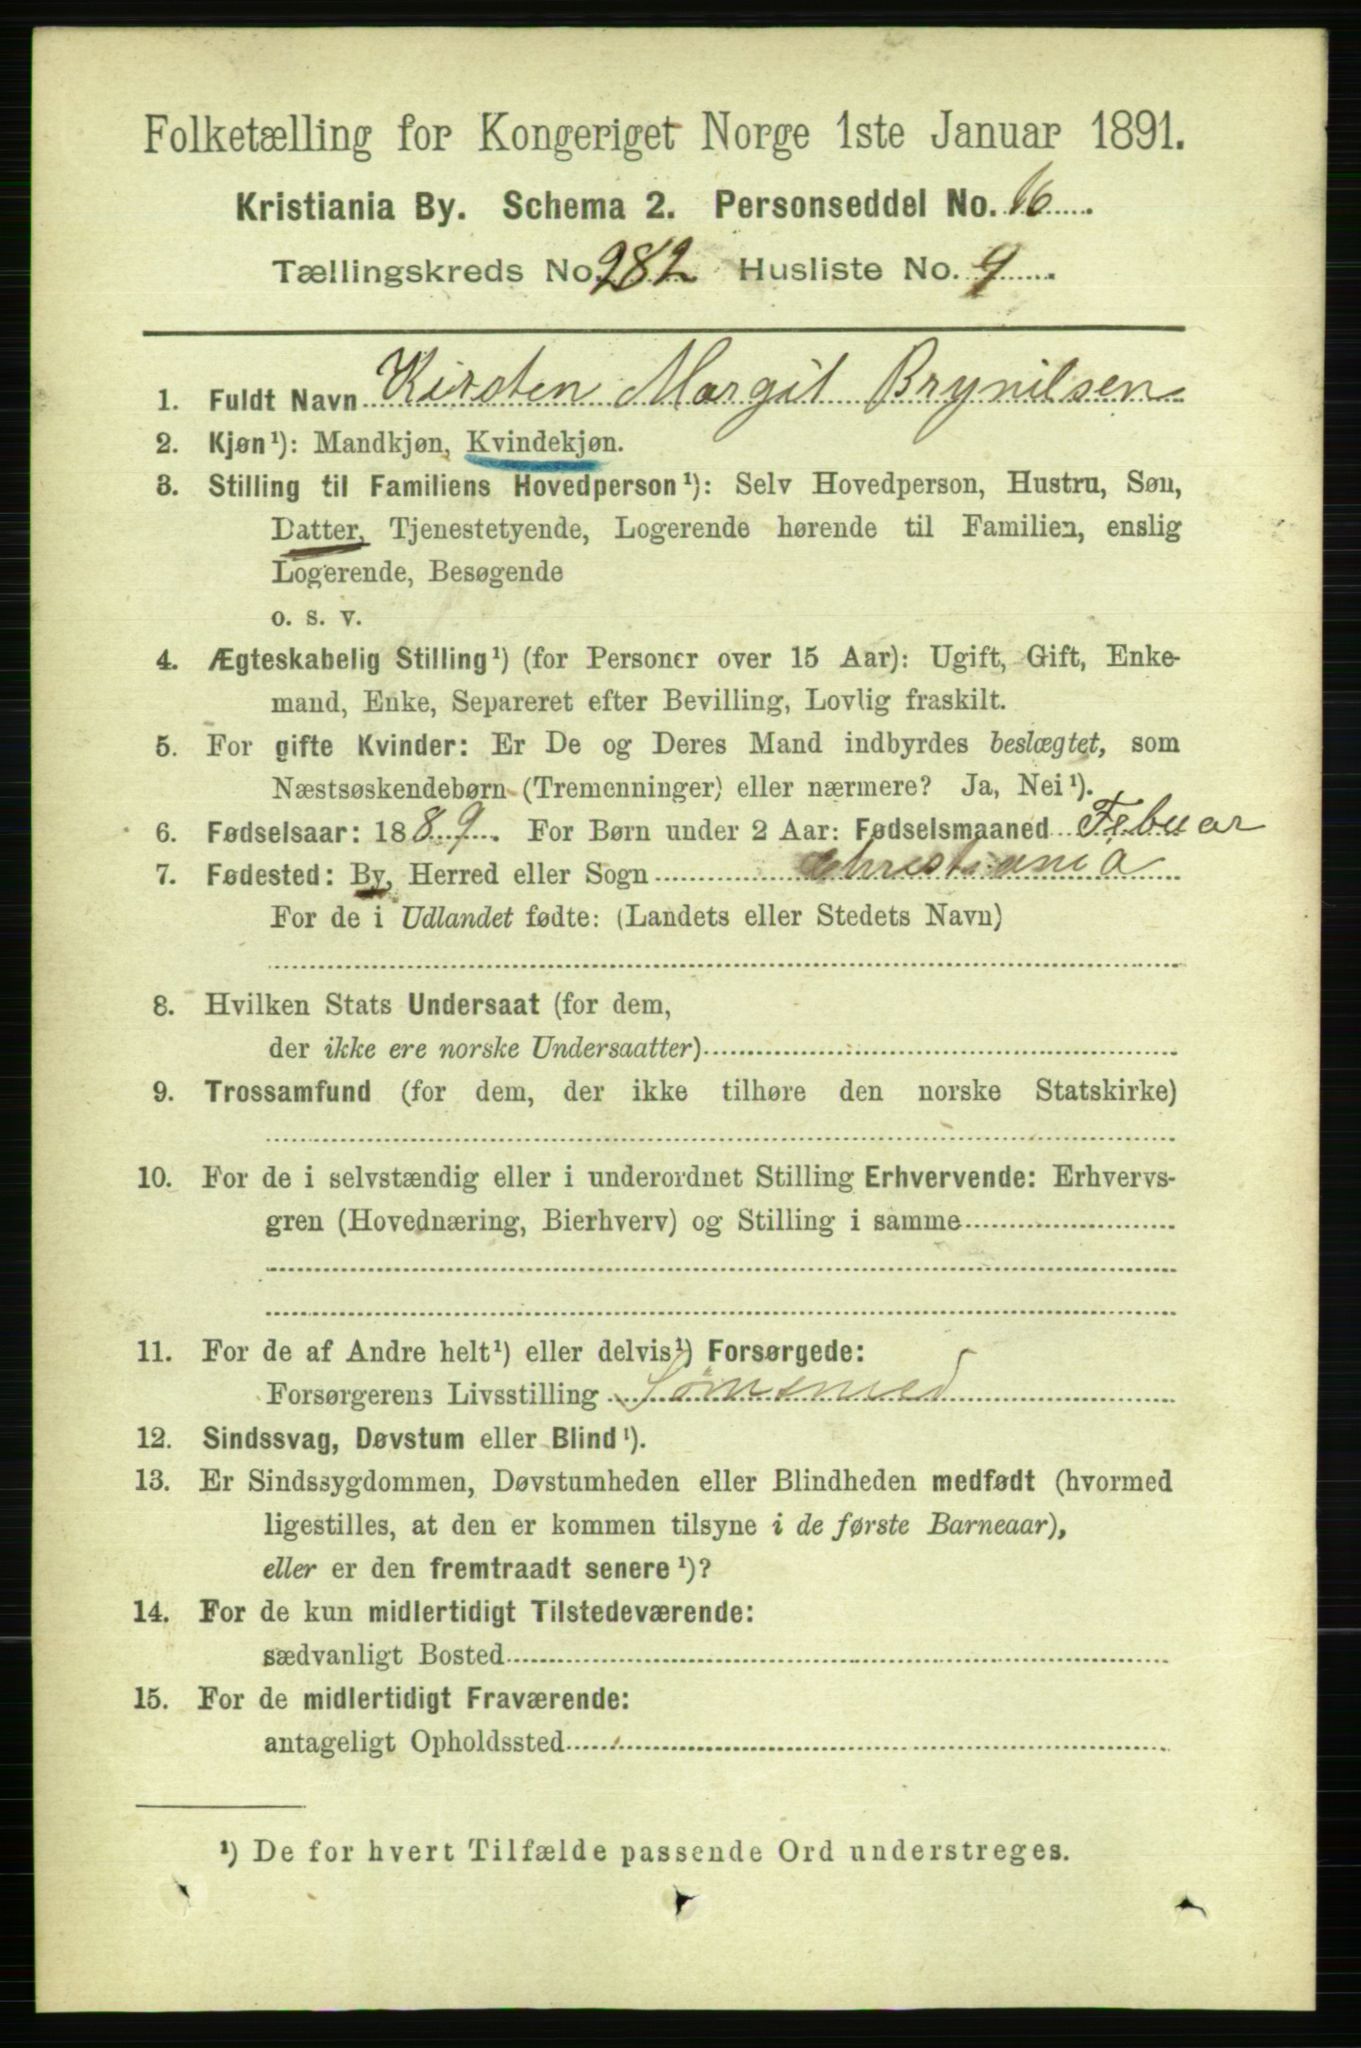 Folketælling for Kongeriget Norge 1ste Januar 1891.
Kristiania By. Schema 2. Personseddel No. 16
Tællingskreds No. 282 Husliste No. 9
1. Fuldt Navn Kirsten Margit Brynilsen
2. Kjøn¹): Mandkjøn, Kvindekjøn.
3. Stilling til Familiens Hovedperson¹): Selv Hovedperson, Hustru, Søn,
Datter, Tjenestetyende, Logerende hørende til Familien, enslig
Logerende, Besøgende
o. s. v.
4. Ægteskabelig Stilling¹) (for Personer over 15 Aar): Ugift, Gift, Enke-
mand, Enke, Separeret efter Bevilling, Lovlig fraskilt.
5. For gifte Kvinder: Er De og Deres Mand indbyrdes beslægtet, som
Næstsøskendebørn (Tremenninger) eller nærmere? Ja, Nei¹).
6. Fødselsaar: 1889. For Børn under 2 Aar: Fødselsmaaned Febuar
7. Fødested: By, Herred eller Sogn Christiania
For de i Udlandet fødte: (Landets eller Stedets Navn)
8. Hvilken Stats Undersaat (for dem,
der ikke ere norske Undersaatter)
9. Trossamfund (for dem, der ikke tilhøre den norske Statskirke)
10. For de i selvstændig eller i underordnet Stilling Erhvervende: Erhvervs-
gren (Hovednæring, Bierhverv) og Stilling i samme
11. For de af Andre helt¹) eller delvis¹) Forsørgede:
Forsørgerens Livsstilling
12. Sindssvag, Døvstum eller Blind¹).
13. Er Sindssygdommen, Døvstumheden eller Blindheden medfødt (hvormed
ligestilles, at den er kommen tilsyne i de første Barneaar),
eller er den fremtraadt senere¹)?
14. For de kun midlertidigt Tilstedeværende:
sædvanligt Bosted
15. For de midlertidigt Fraværende:
antageligt Opholdssted
¹) De for hvert Tilfælde passende Ord understreges.